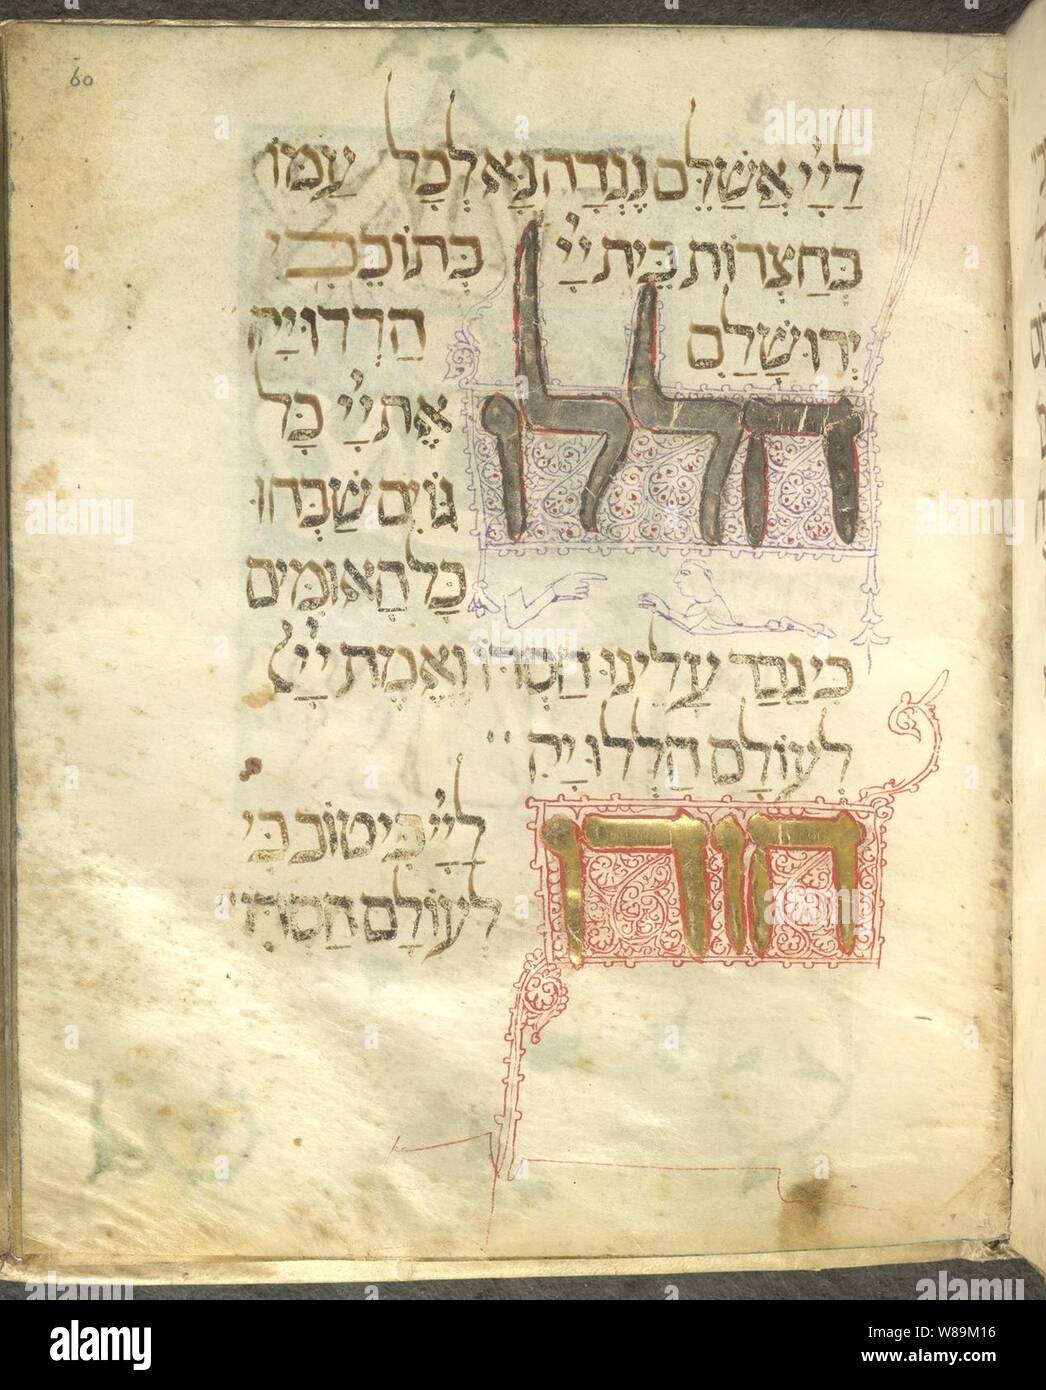 60
לַיְיָ אֲשַׁלֵּם נֶגְדָה נָּא לְכָל עַמּוֹ
בְּחַצְרוֹת בֵּית יְיָ בְּתוֹכֵכִי
יְרוּשָׁלִַם הַלְלוּיָהּ
הללו אֶת יְיָ כָּל
גּוֹיִם שַׁבְּחוּ
כָּל הָאוּמִּים
כִּי גָבַר עָלֵינוּ חַסְדּוֹ וֶאֱמֶת יְיָ
לְעוֹלָם הַלְלוּיָהּ
הודו לַיְיָ כִּי טוֹב כִּי
לְעוֹלָם חַסְדּוֹ
alamy
Image ID: W89M16
www.alamy.com